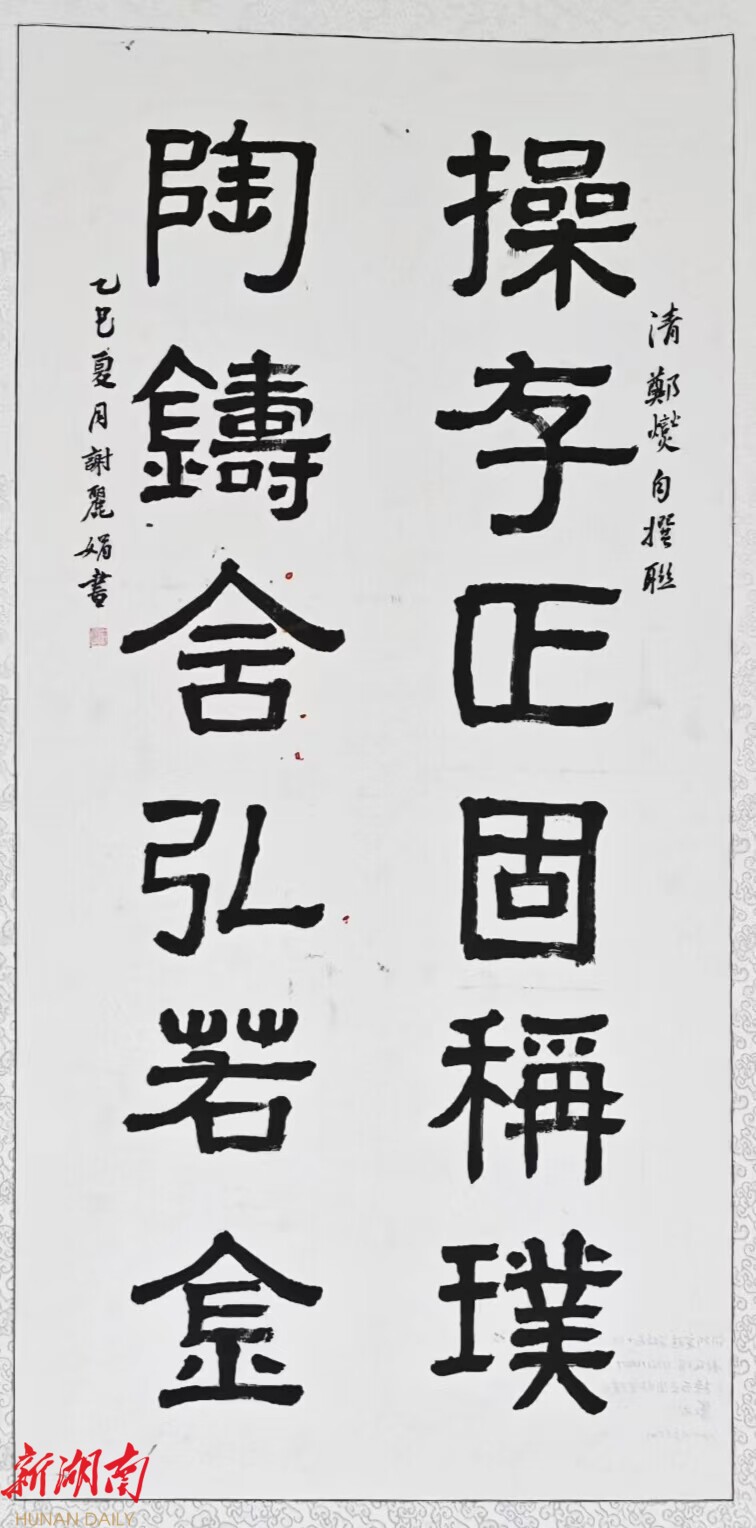 清鄭燮自撰聯
操存正固稱璞
陶鑄含弘若金
乙巳夏月謝麗娟書
新湖南
HUNAN DAILY